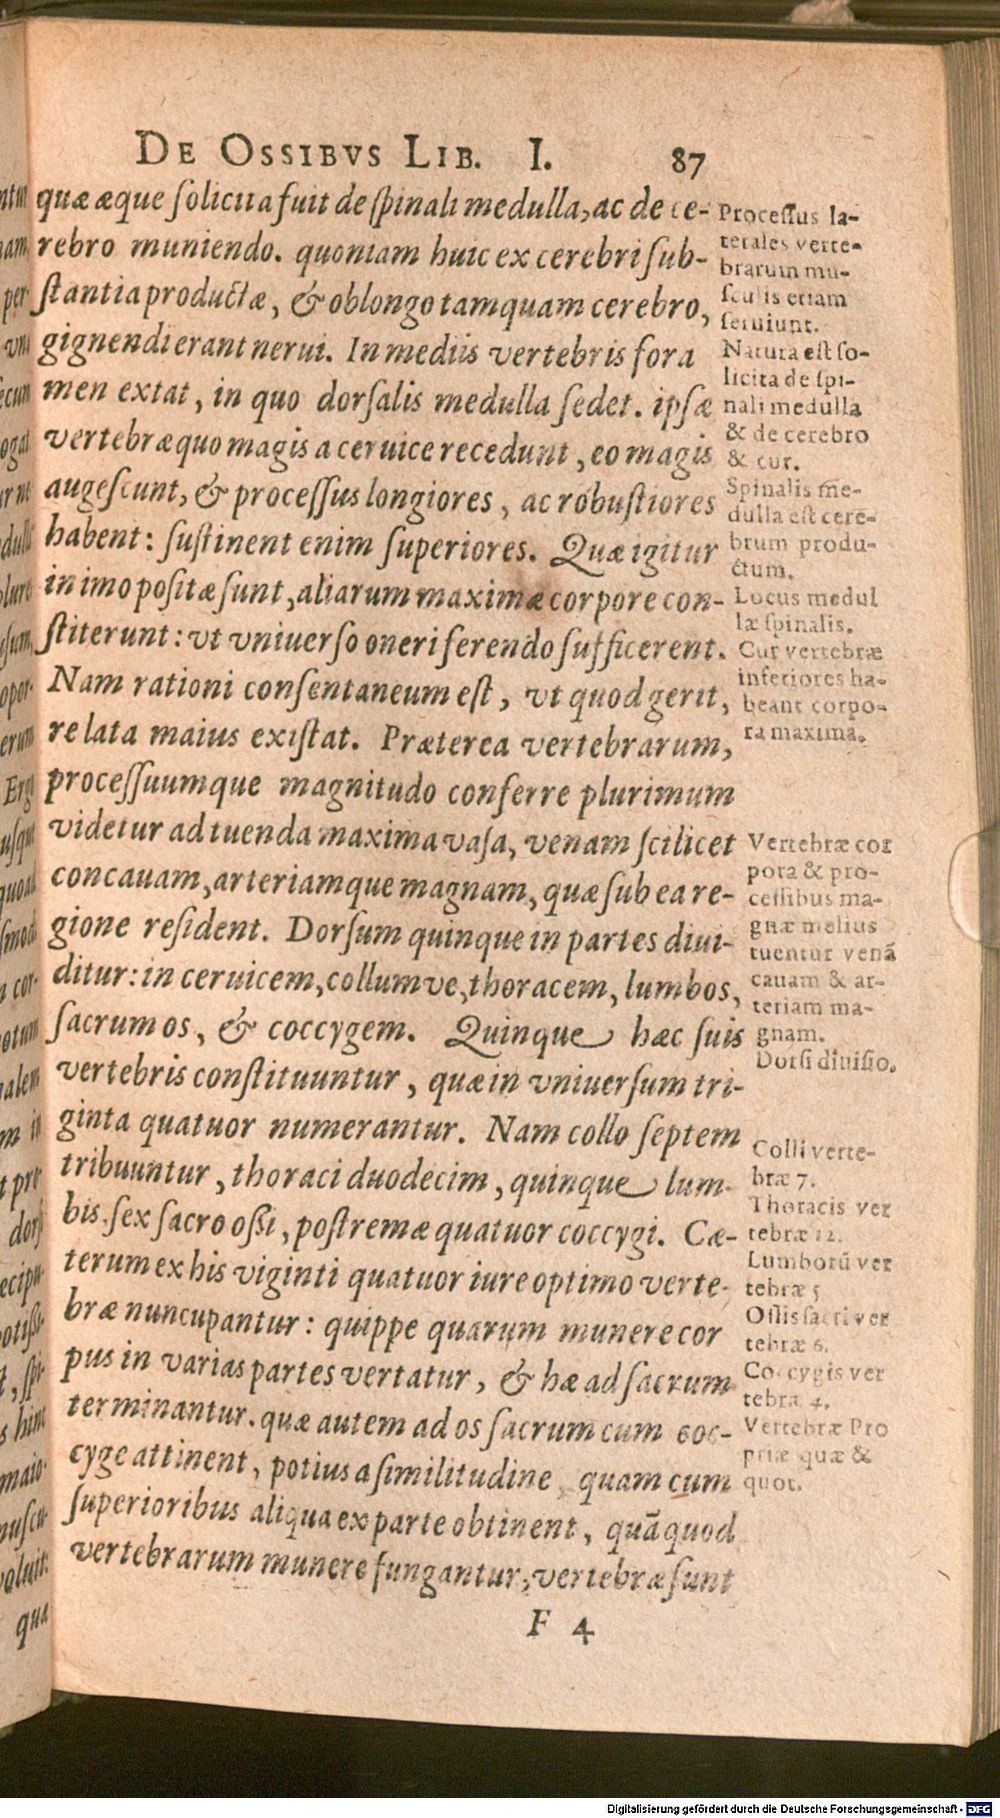 DE OSSIBVS LIB. I. 87
quæ æque solicita fuit de spinali medulla, ac de ce-
rebro muniendo. quoniam huic ex cerebri sub-
stantia productæ, & oblongo tamquam cerebro,
gignendi erant nerui. In mediis vertebris fora
men extat, in quo dorsalis medulla sedet. ipsæ
vertebræ quo magis a ceruice recedunt, eo magis
augescunt, & processus longiores, ac robustiores
habent: sustinent enim superiores. Quæ igitur
in imo positæ sunt, aliarum maximæ corpore con-
stiterunt: vt vniuerso oneri ferendo sufficerent.
Nam rationi consentaneum est, vt quod gerit,
re lata maius existat. Præterea vertebrarum,
processuumque magnitudo conferre plurimum
videtur ad tuenda maxima vasa, venam scilicet
concauam, arteriamque magnam, quæ sub ea re-
gione resident. Dorsum quinque in partes diui-
ditur: in ceruicem, collumve, thoracem, lumbos,
sacrum os, & coccygem. Quinque hæc suis
vertebris constituuntur, quæ in vniuersum tri-
ginta quatuor numerantur. Nam collo septem
tribuuntur, thoraci duodecim, quinque lum-
bis. sex sacro ossi, postremæ quatuor coccygi. Cæ-
terum ex his viginti quatuor iure optimo verte-
bræ nuncupantur: quippe quarum munere cor
pus in varias partes vertatur, & hæ ad sacrum
terminantur. quæ autem ad os sacrum cum coc-
cyge attinent, potius a similitudine, quam cum
superioribus aliqua ex parte obtinent, quā quod
vertebrarum munere fungantur, vertebræ sunt
F 4
Processus la-
terales verte-
brarum mu-
sculis etiam
seruiunt.
Natura est so-
licita de spi-
nali medulla
& de cerebro
& cur.
Spinalis me-
dulla est cere-
brum produ-
ctum.
Locus medul
læ spinalis.
Cur vertebræ
inferiores ha-
beant corpo-
ra maxima.
Vertebræ cor
pora & pro-
cessibus ma-
gnæ melius
tuentur venā
cauam & ar-
teriam ma-
gnam.
Dorsi diuisio.
Colli verte-
bræ 7.
Thoracis ver
tebræ 12.
Lumborū ver
tebræ 5
Ossis sacri ver
tebræ 6.
Coccygis ver
tebræ 4.
Vertebræ Pro
priæ quæ &
quot.